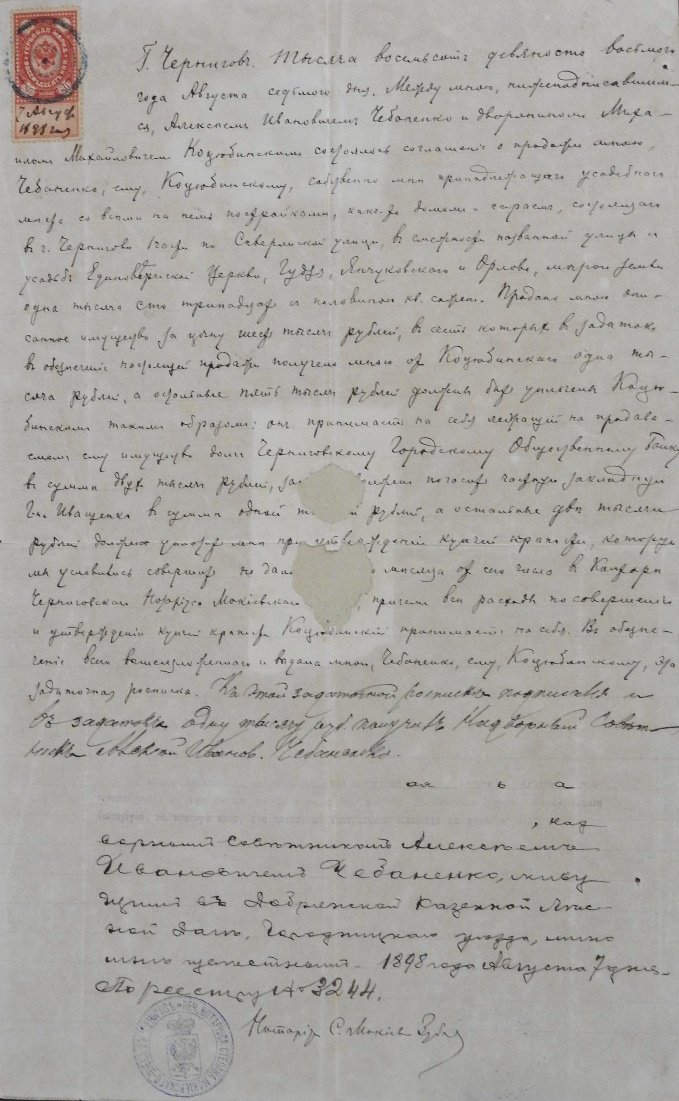 7 Август
1898 года
Г. Черниговъ. Тысяча восемьсотъ девяносто восьмого
года Августа седьмого дня. Между мною, нижеподписавшим-
ся, Алексѣемъ Ивановичемъ Чебаненко и дворяниномъ Миха-
иломъ Михайловичемъ Коцюбинскимъ состоялось соглашенiе о продажѣ мною,
Чебаненко, ему, Коцюбинскому, собственно мнѣ принадлежащаго усадебнаго
мѣста со всѣми на немъ постройками, какъ то домомъ и сараемъ, состоящаго
въ г. Черниговѣ по Сѣверянской улицѣ, въ смежности названной улицы и
усадебъ Единовѣрческой Церкви, Янчуковскаго и Орлова, мѣрою земли
одна тысяча сто тринадцать съ половиною кв. сажен. Продано мною опи-
санное имущество за цѣну шесть тысячъ рублей, въ счетъ которыхъ въ задатокъ
въ обезпеченiе настоящей продажи получено мною отъ Коцюбинскаго одна ты-
сяча рублей, а остальные пять тысячъ рублей должны быть уплачены Коцю-
бинскимъ такимъ образомъ: онъ принимаетъ на себя лежащiй на продава-
емомъ ему имуществѣ долгъ Черниговскому Городскому Общественному Банку
въ суммѣ двухъ тысячъ рублей, погасить частную закладную
Иващенко въ суммѣ одной рублей, а остальные двѣ тысячи
рублей долженъ уплатить мнѣ при утвержденiи купчей крѣпости, которую
мы условились совершить не мѣсяца отъ сего числа въ Конторѣ
Черниговскаго Нотарiуса Мокiевскаго причемъ всѣ расходы по совершенiю
и утвержденiю купчей крѣпости Коцюбинскiй принимаетъ на себя. Въ обезпе-
ченiе всего вышеизложеннаго и выдана мною, Чебаненко, ему, Коцюбинскому, эта
задаточная росписка. Къ этой задаточной роспискѣ подписался и
въ задатокъ одну тысячу руб. получилъ Надворный Совѣт-
никъ Алексѣй Иванов. Чебаненко.
, над
ворнымъ Совѣтникомъ Алексѣемъ
Ивановичемъ Чебаненко, живу
щимъ въ Добрянской Казенной Лѣс-
ной Дачѣ, Городницкаго уѣзда, лично
мнѣ извѣстнымъ. 1898 года Августа 7 дня.
По реестру № 3244.
Нотарiусъ С. Мокiевскiй